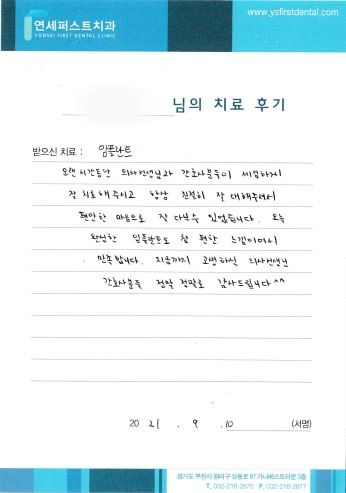 연세퍼스트치과
YONSEI FIRST DENTAL CLINIC
www.ysfirstdental.com
님의 치료 후기
받으신 치료 : 임플란트
오랜 시간동안 의사선생님과 간호사분들이 세심하게
잘 치료해 주시고 항상 친절히 잘 대해주셔서
편안한 마음으로 잘 다닐수 있었습니다. 오늘
완성한 임플란트도 참 편한 느낌이어서
만족합니다. 지금까지 고생하신 의사선생님
간호사분들 정말 정말로 감사드립니다^^
20 21 . 9 . 10 (서명)
경기도 부천시 원미구 상동로 87 가나베스트타운 3층
T. 032-216-2875 F. 032-216-2877